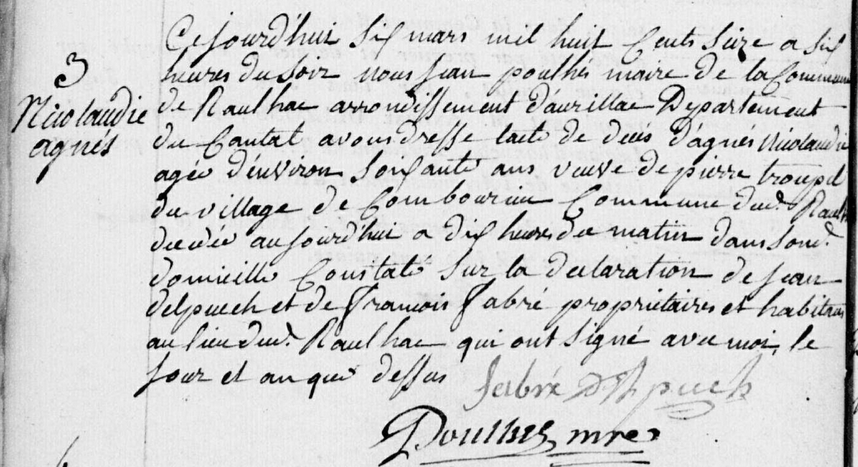 3
Nicolaudie
agnés
Cejourd'huit six mars mil huit Cents seize a six
heures du soir nous jean poulhes maire de la Commune
de Raulhac arrondissement d'aurillac Departement
du Cantal avons dresse lacte de deces d'agnés Nicolaudie
agée d'environ soixante ans veuve de pierre troupel
du village de Combourieu Commune dud. Raulh
decedée aujourd'hui a dix heures du matin dans son d.
domicille Constaté sur la declaration de jean
delpuech et de francois fabré propriétaires et habitans
au lieu dud. Raulhac qui ont signé avec moi, le
jour et an que dessus
fabré Delpuech
Poulhes mre